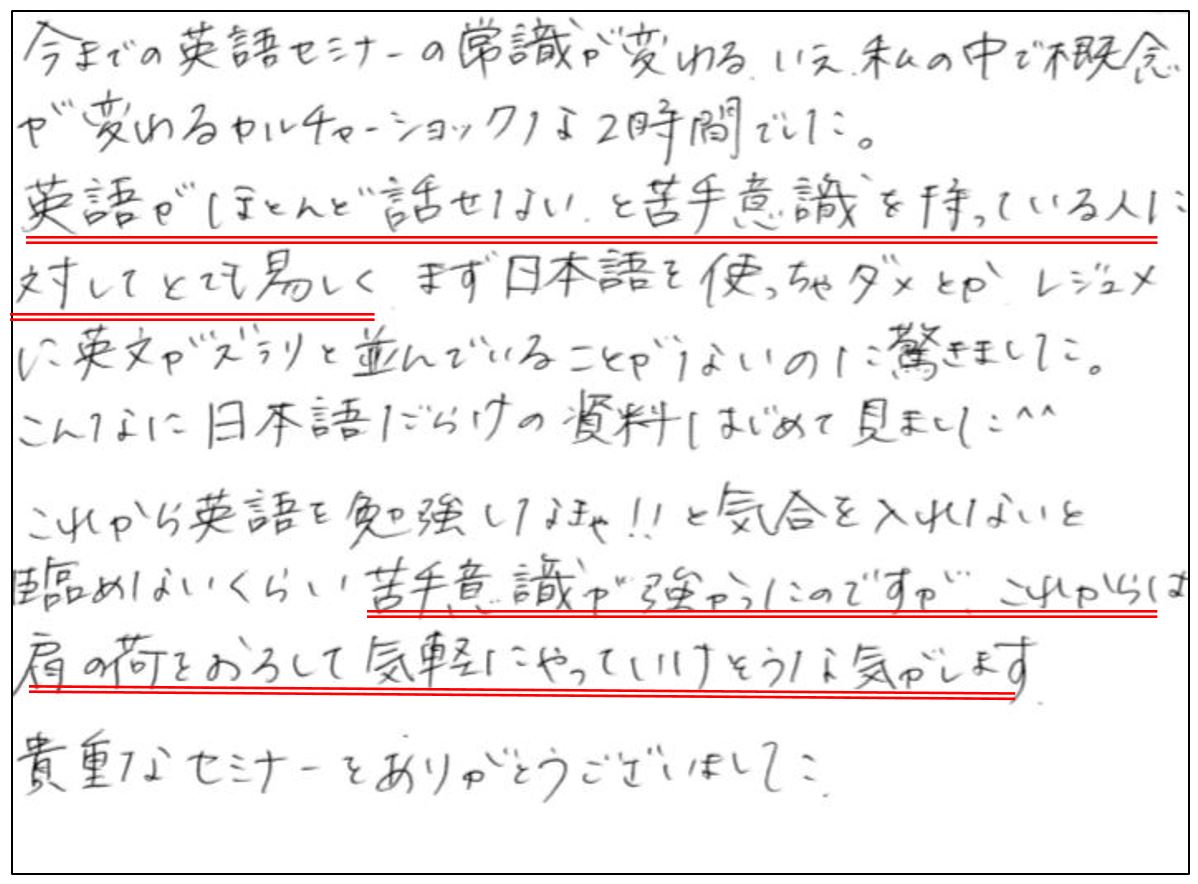 今までの英語セミナーの常識が変わる、いえ、私の中で概念
が変わるカルチャーショックな2時間でした。
英語がほとんど話せない、と苦手意識を持っている人に
対してとても易しく、まず日本語を使っちゃダメとか、レジュメ
に英文がズラリと並んでいることがないのに驚きました。
こんなに日本語だらけの資料はじめて見ました^^
これから英語を勉強しなきゃ!!と気合を入れないと
臨めないくらい苦手意識が強かったのですが、これからは
肩の荷をおろして気軽にやっていけそうな気がします.
貴重なセミナーをありがとうございました.